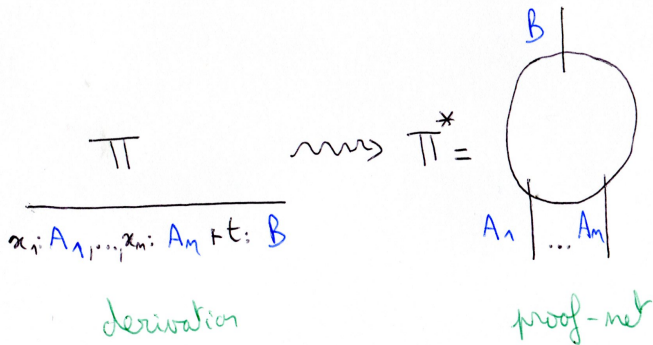 B
Π ⟿ Π* =
x₁: A₁, ..., xₙ: Aₙ ⊢ t: B
A₁ ... Aₙ
derivation proof-net